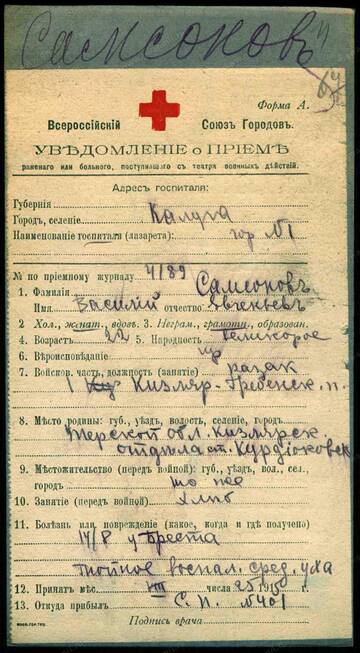 Самсоновъ
Форма А.
Всероссійскій Союзъ Городовъ.
УВѢДОМЛЕНІЕ о ПРІЕМѢ
раненаго или больного, поступившаго съ театра военныхъ дѣйствій.
Адресъ госпиталя:
Губернія
Городъ, селеніе Калуга
Наименованіе госпиталя (лазарета): гор №1
№ по пріемному журналу 4189
1. Фамилія Самсоновъ
Имя Василій отчество
2 Хол., женат., вдовъ. 3. Неграм., грамотн., образован.
4. Возрастъ 22 5. Народность
6. Вѣроисповѣданіе
7. Войсков. часть, должность (занятіе)
1 Кизляр-Гребенск. п.
8. Мѣсто родины: губ., уѣздъ, волость, селеніе, городъ
Терской обл. Кизлярск
отдѣла ст.
9. Мѣстожительство (передъ войной): губ., уѣздъ, вол., сел.,
городъ то же
10. Занятіе (передъ войной)
11. Болѣзнь или поврежденіе (какое, когда и гдѣ получено)
14/8 у Бреста
гнойное воспал. сред. уха
12. Принятъ мѣс. VIII числа 23 1915 г.
13. Откуда прибылъ С. П. №401
Подпись врача